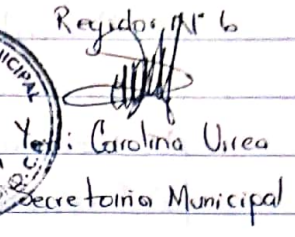 Regidor Nº 6
Carolina Urrea
Secretaria Municipal